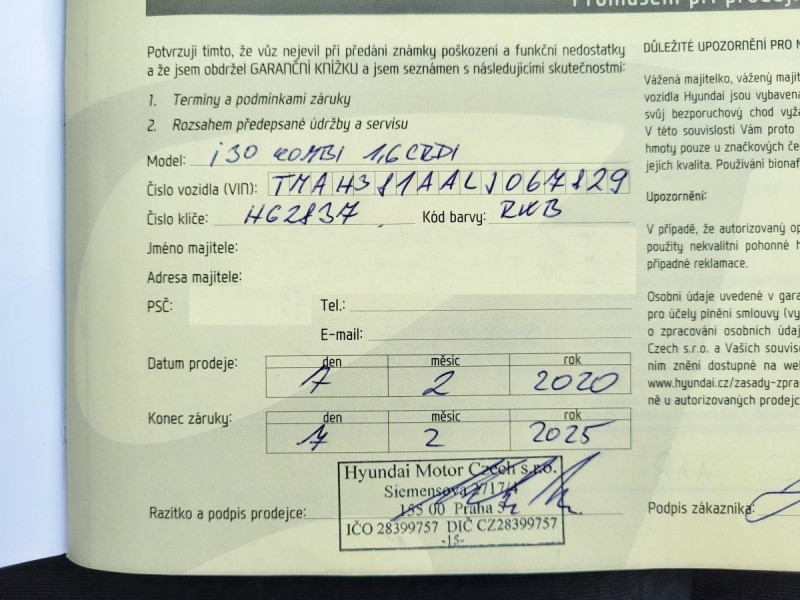 Potvrzuji tímto, že vůz nejevil při předání známky poškození a funkční nedostatky
a že jsem obdržel GARANČNÍ KNÍŽKU a jsem seznámen s následujícími skutečnostmi:
1. Termíny a podmínkami záruky
2. Rozsahem předepsané údržby a servisu
Model: i30 KOMBI 1,6 CRDI
Číslo vozidla (VIN): TMAH381AALJ067829
Číslo klíče: HG2837 Kód barvy: RKB
Jméno majitele:
Adresa majitele:
PSČ: Tel.:
E-mail:
Datum prodeje: den měsíc rok
7 2 2020
Konec záruky: den měsíc rok
7 2 2025
Razítko a podpis prodejce:
Hyundai Motor Czech s.r.o.
Siemensova 2717/4
155 00 Praha 5
IČO 28399757 DIČ CZ28399757
-15-
DŮLEŽITÉ UPOZORNĚNÍ PRO
Vážená majitelko, vážený
vozidla Hyundai jsou vybavena
svůj bezporuchový chod
V této souvislosti Vám proto
hmoty pouze u značkových
jejich kvalita. Používání
Upozornění:
V případě, že autorizovaný
použity nekvalitní pohonné
případné reklamace.
Osobní údaje uvedené v
pro účely plnění smlouvy
o zpracování osobních
Czech s.r.o. a Vašich
ním znění dostupné na
www.hyundai.cz/zasady-zpra
ně u autorizovaných
Podpis zákazníka: